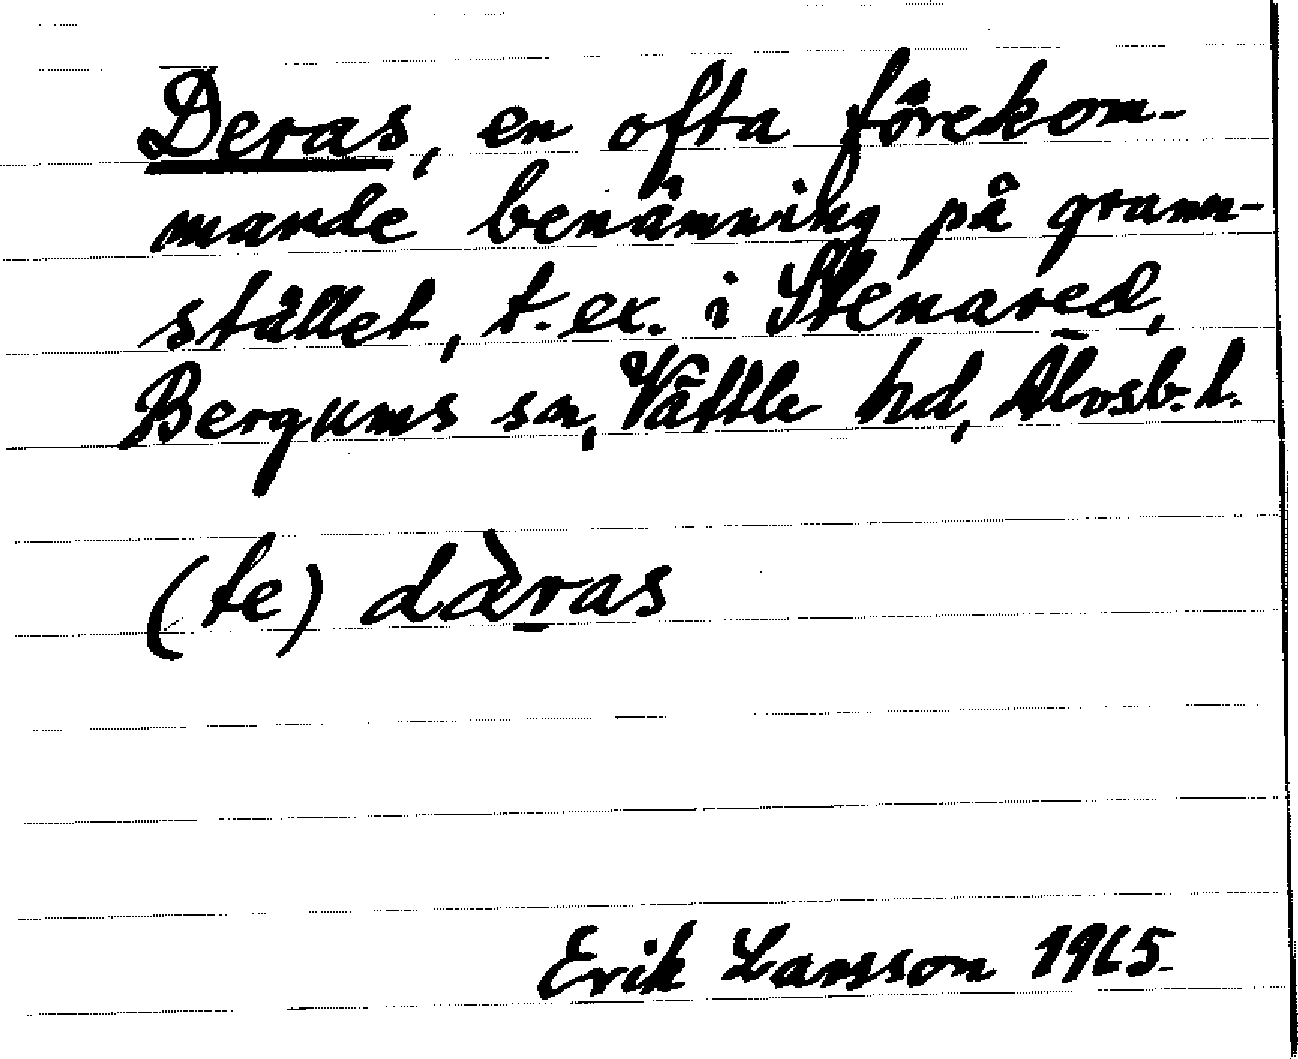 Deras, en ofta förekom-
mande benämning på grann-
stället, t.ex. i Stenared,
Bergums sn, Vättle hd, Älvsb. l.
(te) dæ̀ṟas
Erik Larsson 1965.